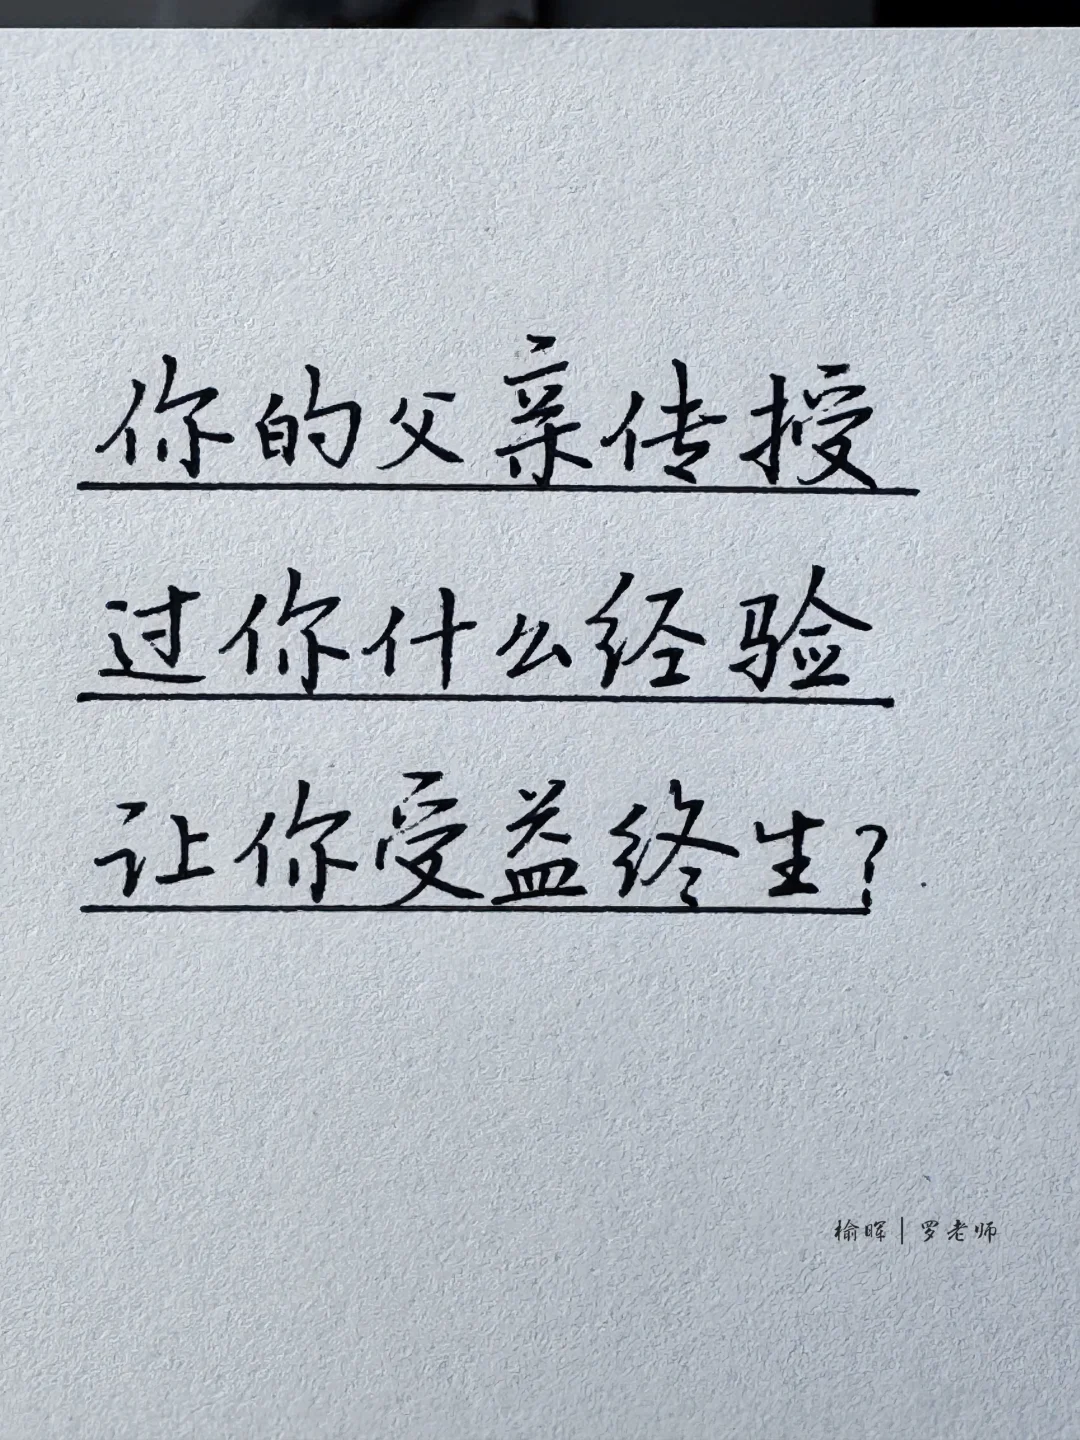 你的父亲传授
过你什么经验
让你受益终生?
榆晖|罗老师